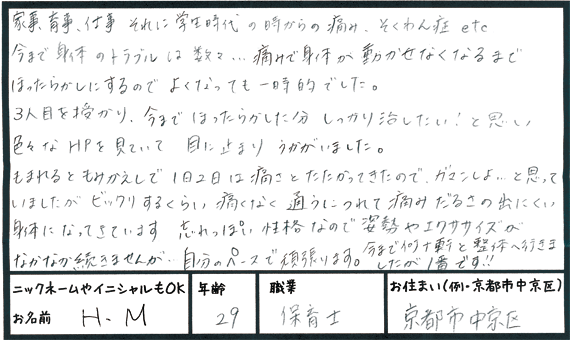 家事、育事、仕事 それに学生時代の時からの痛み、そくわん症 etc
今まで身体のトラブルは数々… 痛みで身体が動かせなくなるまで
ほったらかしにするので よくなっても一時的でした。
3人目を授かり、今までほったらかした分 しっかり治したい!と思い
色々なHPを見ていて 目に止まり うかがいました。
もまれるともみかえしで 1日2日は痛さとたたかってきたので、ガマンしよ…と思って
いましたが ビックリするくらい 痛くなく 通うにつれて痛みだるさの出にくい
身体になってきています 忘れっぽい性格なので 姿勢やエクササイズが
なかなか続きませんが、自分のペースで頑張ります。今まで何十軒と整体へ行きま
したが1番です!!
ニックネームやイニシャルもOK 年齢 職業 お住まい(例・京都市中京区)
お名前 H.M 29 保育士 京都市中京区